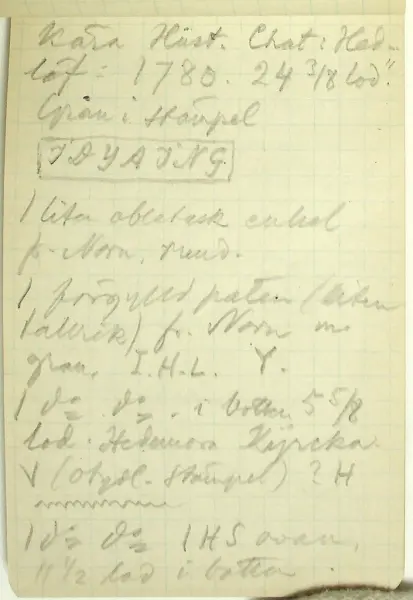 Kära Hust. Chat: Hed-
löf = 1780. 24 3/8 lod".
Gran i stämpel
I D Y A I N G
1 liten oblatask enkel
fr. Norn, rund.
1 förgylld paten (liten
tallrik) fr. Norn m.
gran, I.H.L. Y.
1 do do . i botten 5 5/8
lod. Hedemora Kijrcka
V (otydl. stämpel) ? H
1 do do IHS ovan,
11 1/2 lod i botten